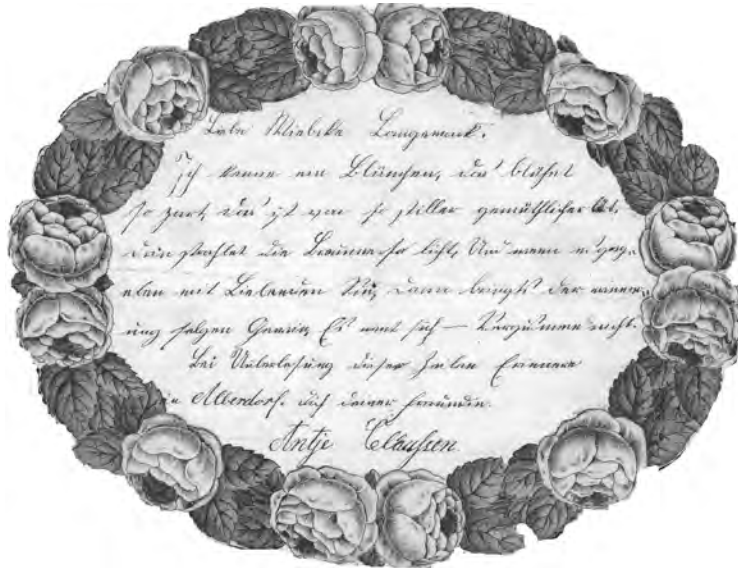 Liebe Wiebcke Langemack.
Ich kenne ein Blümchen, das blühet
so zart, das ist von so stiller gemüthlicher Art,
die Erinnerung licht, Und wenn es
eben mit Liebenden Sinn, dann bringt's der
ung selgen Es nent sich — Vergissmeinnicht.
Bei Ueberlesung dieser Zeilen Erinnere
in Alberdorf. dich deiner Freundin.
Antje Claußen